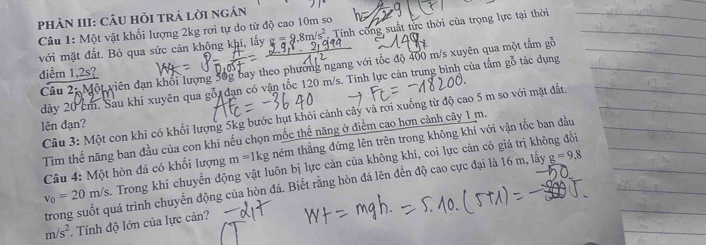 PHẦN III: CÂU HỎI TRẢ LỜI NGẮN
Câu 1: Một vật khối lượng 2kg rơi tự do từ độ cao 10m so
với mặt đất. Bỏ qua sức cản không khí, lấy g = 9.8m/s². Tính công suất tức thời của trọng lực tại thời
điểm 1,2s?
Câu 2: Một viên đạn khối lượng 50g bay theo phương ngang với tốc độ 400 m/s xuyên qua một tấm gỗ
dày 20 cm. Sau khi xuyên qua gỗ, đạn có vận tốc 120 m/s. Tính lực cản trung bình của tấm gỗ tác dụng
lên đạn?
AFc = -3640 → Fc = -18200.
Câu 3: Một con khỉ có khối lượng 5kg bước hụt khỏi cành cây và rơi xuống từ độ cao 5 m so với mặt đất.
Tìm thế năng ban đầu của con khỉ nếu chọn mốc thế năng ở điểm cao hơn cành cây 1 m.
Câu 4: Một hòn đá có khối lượng m =1kg ném thẳng đứng lên trên trong không khí với vận tốc ban đầu
v₀ = 20 m/s. Trong khi chuyển động vật luôn bị lực cản của không khí, coi lực cản có giá trị không đổi
trong suốt quá trình chuyển động của hòn đá. Biết rằng hòn đá lên đến độ cao cực đại là 16 m, lấy g = 9,8
m/s². Tính độ lớn của lực cản?
-50
Wt = mgh. = 5.10.(5+1) = J.